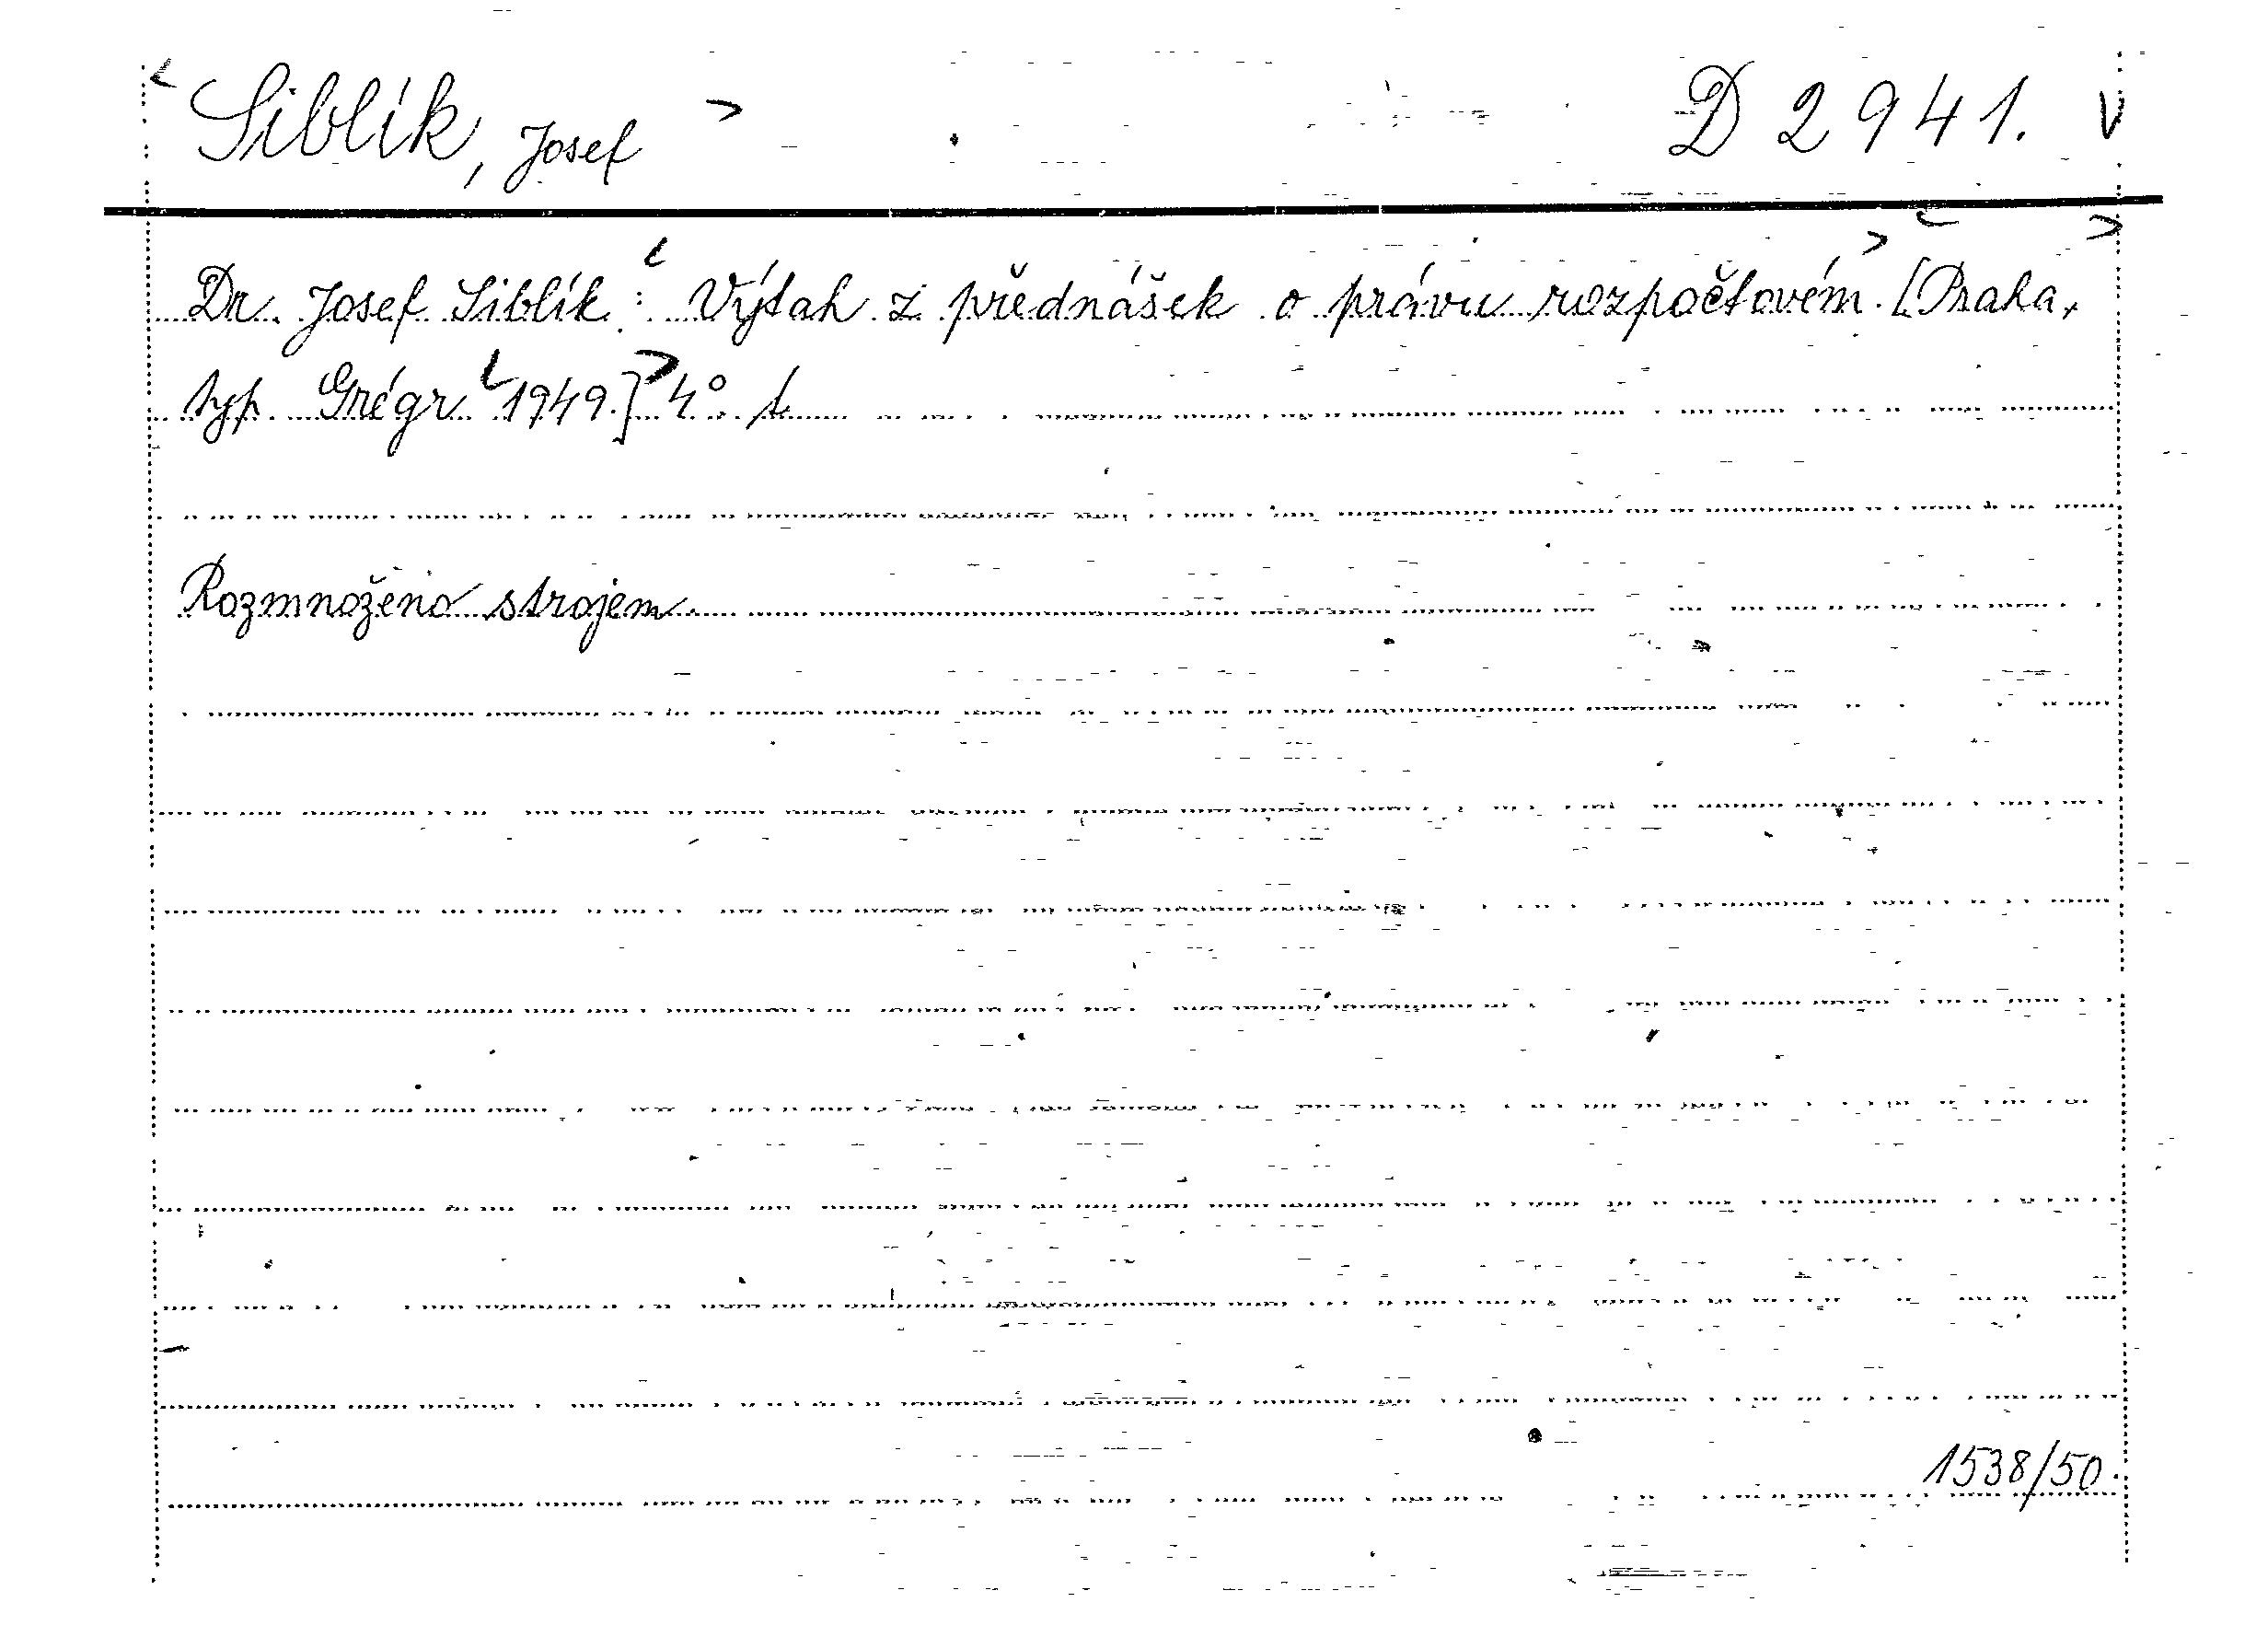 Siblík, Josef D 2941. V
Dr. Josef Siblík: Výtah z přednášek o právu rozpočtovém. [Praha,
typ. Grégr 1949.] 4°. t.
Rozmnoženo strojem.
1538/50.